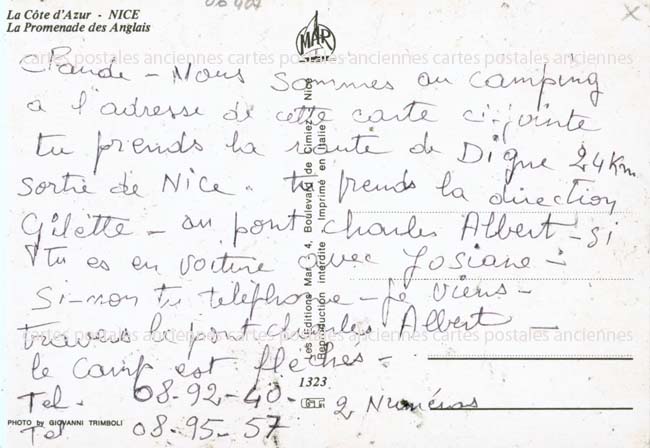 La Côte d'Azur - NICE
La Promenade des Anglais
06 407
MAR
cartes postales anciennes cartes postales anciennes cartes postales anciennes
Claude - Nous sommes au camping
a l'adresse de cette carte ci-jointe
tu prends la route de Digne 24 Km
sortie de Nice - tu prends la direction
Gilette - au pont charles Albert - si
tu es en voiture avec Josiane -
Si-non tu téléphone - je viens -
travers le pont charles Albert -
cartes postales anciennes cartes postales anciennes cartes postales anciennes
le camp est fléchés -
Tel. 08-92-40- 2 Numéros
Tel 08-95-57
Les Editions Mar, 4, Boulevard de Cimiez, Nice
Reproduction interdite Imprimé en Italie
1323
PHOTO by GIOVANNI TRIMBOLI